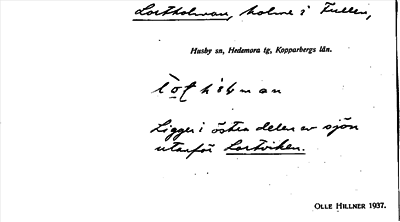 Lortholmen, holme i Fullen,
Husby sn, Hedemora tg, Kopparbergs län.
Ligger i östra delen av sjön
utanför Lortviken.
OLLE HILLNER 1937.